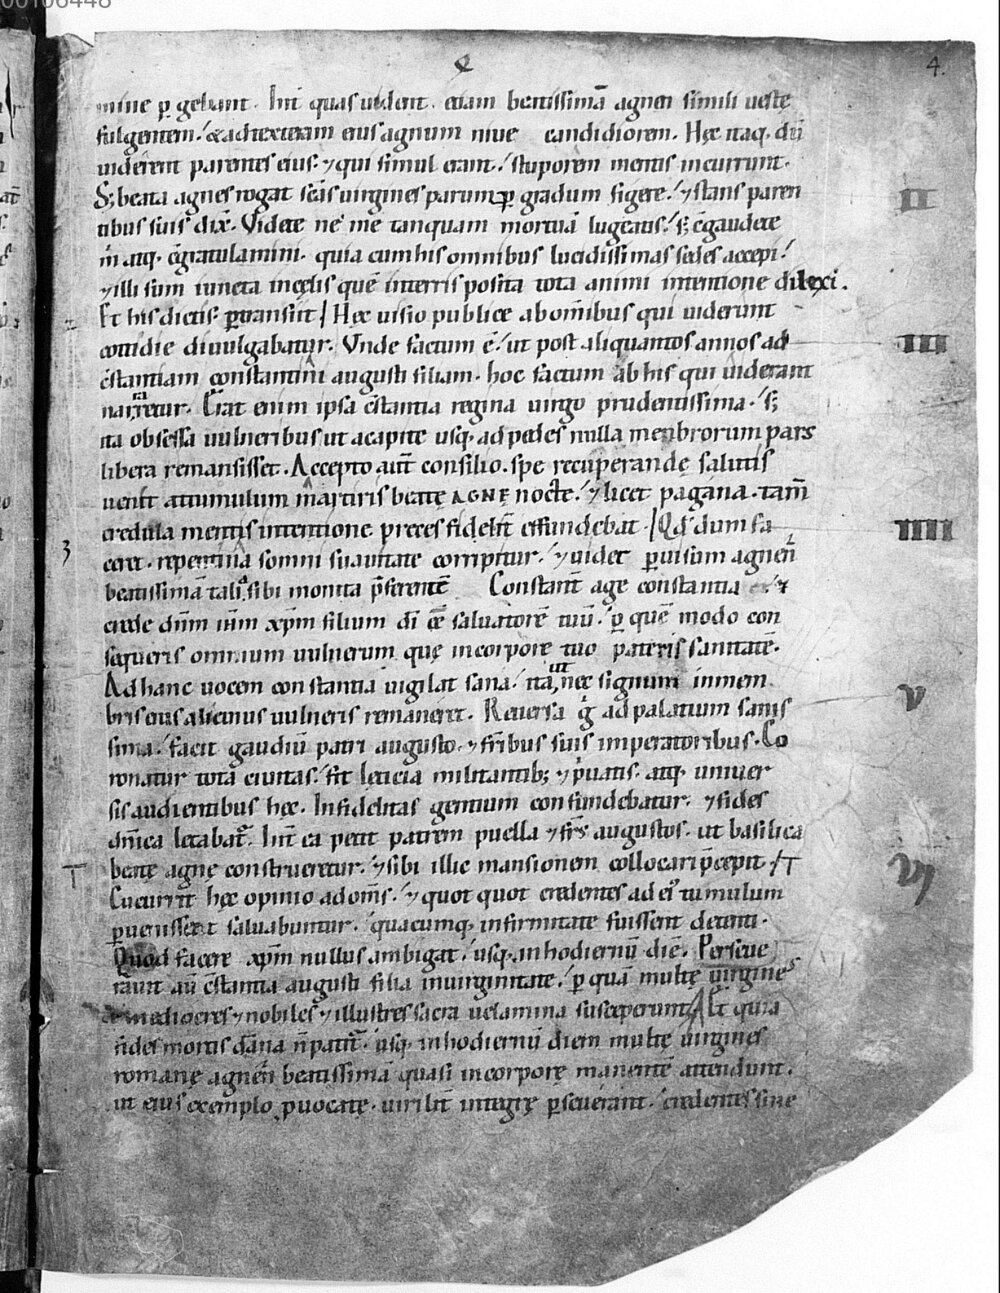 00106448
4.
mine ꝑ gebant. Int̄ quas uident. etiam beatissimā agnen simili ueste
fulgentem. & ad dexteram eius agnum niue candidiorem. Hęc itaq; dū
uiderent parentes eius. ⁊ qui simul erant. stuporem mentis incurrunt.
S; beata agnes rogat scās uirgines parumꝑ gradum figere. ⁊ stans paren
tibus suis dix̄. Videte ne me tanquam mortuā lugeatis. s; c̄gaudete
m̄ atq; c̄gratulamini. quia cum his omnibus lucidissimas sedes accepi.
⁊ illi sum iuncta in cęlis quē in terris posita tota animi intentione dilexi.
Et his dictis ꝑtransiit / Hęc uisio publice ab omībus qui uiderunt
cottidie diuulgabatur. Vnde factum ē. ut post aliquantos annos ad
c̄stantiam constantini augusti filiam. hoc factum ab his qui uiderant
narraretur. Erat enim ipsa c̄stantia regina uirgo prudentissima. s;
ita obsessa uulneribus ut a capite usq; ad pedes nulla menbrorum pars
libera remansisset. Accepto aut̄ consilio. spe recuperandę salutis
uenit attumulum martiris beatę AGNĘ nocte. ⁊ licet pagana. tam̄
credula mentis intentione preces fidelit̄ effundebat / Qd̄ dum fa
ceret. repentina somni suauitate corripitur. ⁊ uidet ꝑ uisum agnen
beatissimā talia sibi monita p̄ferentē Constant̄ age constantia ⁊
crede dn̄m ih̄m xp̄m filium dī ēe saluatorē tuū. ꝑ quē modo con
sequeris omnium uulnerum quę in corpore tuo pateris sanitatē.
Ad hanc uocem constantia uigilat sana. ita ut nec signum inmem
bris eius alicuius uulneris remaneret. Reuersa g̊ ad palatium sanis
sima. facit gaudiū patri augusto. ⁊ fr̄ibus suis imperatoribus. Co
ronatur tota ciuitas. fit lęticia militantib; ⁊ p̓uatis. atq; uniuer
sis audientibus hęc. Infidelitas gentium confundebatur. ⁊ fides
dn̄ica lętabat̄. Int̄ ea petit patrem puella ⁊ fr̄s augustos. ut basilica
beatę agnę construeretur. ⁊ sibi illic mansionem collocari p̄cepit
Cucurrit hęc opinio ad om̄s. ⁊ quot quot credentes ad ei᷒ tumulum
ꝑuenissent saluabuntur. quacumq; infirmitate fuissent detenti.
Quod facere xp̄m nullus ambigat. usq; in hodiernū diē. Perseue
rauit aū c̄stantia augusti filia in uirginitate. ꝑ quā multę uirgines
& mediocres ⁊ nobiles ⁊ illustres sacra uelamina susceperunt / Et quia
fides mortis dāna n̄ patit̄. usq; in hodiernū diem multę uirgines
romanę agnen beatissimā quasi in corpore manentē attendunt.
ut eius exemplo ꝓuocatę. uirilit̄ integrę ꝑseuerant. credentes sine
II
III
IIII
V
VI